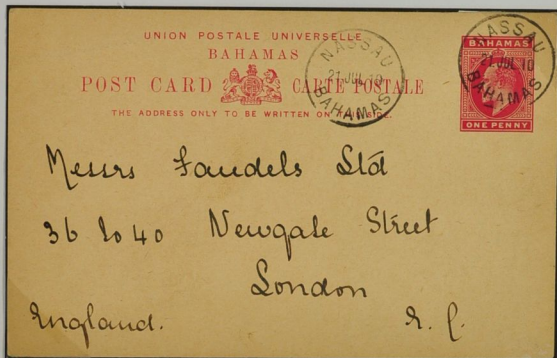 UNION POSTALE UNIVERSELLE
BAHAMAS
POST CARD CARTE POSTALE
THE ADDRESS ONLY TO BE WRITTEN ON THIS SIDE.
NASSAU
21 JUL 10
BAHAMAS
BAHAMAS
NASSAU
21 JUL 10
BAHAMAS
ONE PENNY
Messrs Faudels Ltd
36 to 40 Newgate Street
London
England. E. C.